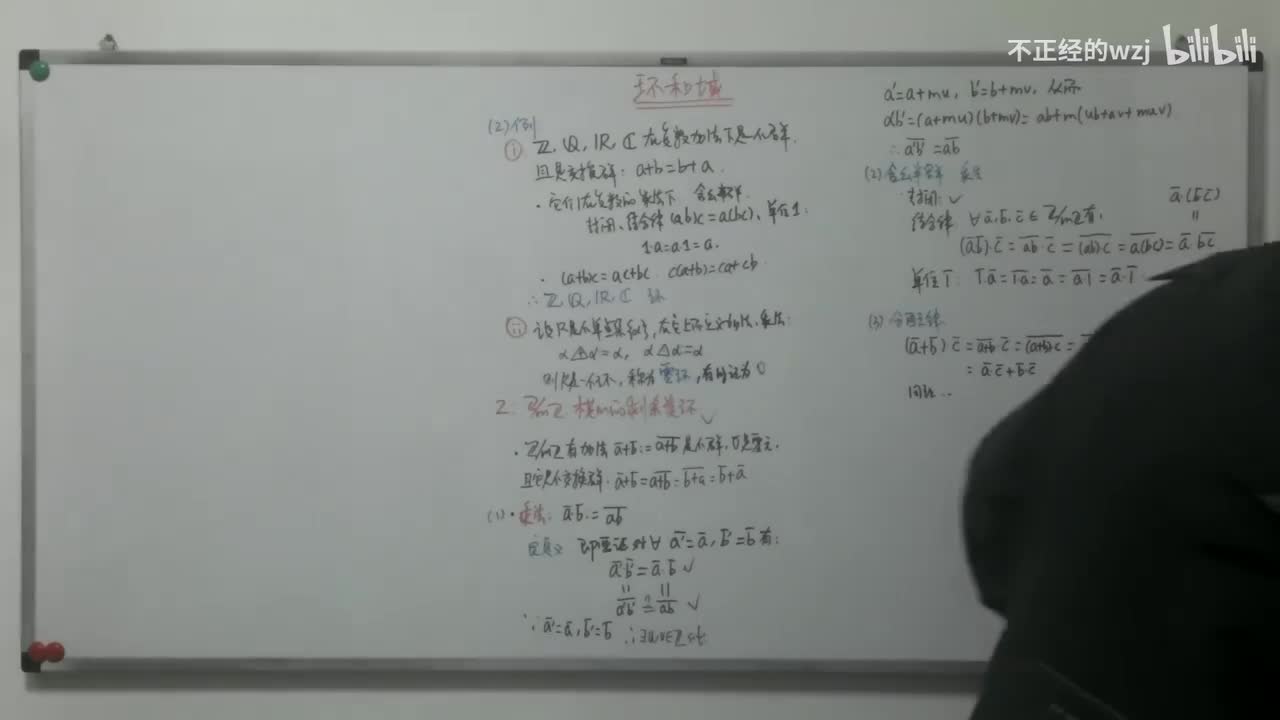 不正经的wzj bilibili
环和域
(2) 例
① ℤ, ℚ, ℝ, ℂ 在复数加法下是个群.
且是交换群: a+b=b+a.
· 它们在复数的乘法下 含幺半群
封闭、结合律 (ab)c=a(bc)、单位1:
1·a=a·1=a.
· (a+b)c=ac+bc c(a+b)=ca+cb
∴ ℤ, ℚ, ℝ, ℂ 环
② 设R是个单点集{α}, 在它上定义加法、乘法:
α+α=α, α△α=α
则R是一个环, 称为零环, 有时记为0
2. ℤ/mℤ 模m的剩余类环 ✓
· ℤ/mℤ有加法 a̅+b̅:=\overline{a+b} 是个群, 0̅是零元.
且它是个交换群: a̅+b̅=\overline{a+b}=\overline{b+a}=b̅+a̅
(1)· 乘法: a̅·b̅:=\overline{ab}
定义 即要证对∀ a̅'=a̅, b̅'=b̅有:
a̅'b̅'=a̅·b̅ ✓
\overline{a'b'} ≟ \overline{ab} ✓
∵ a̅'=a̅, b̅'=b̅ ∴∃u,v∈ℤ s.t.
a'=a+mu, b'=b+mv, 从而
a'b'=(a+mu)(b+mv)=ab+m(ub+av+muv)
∴ \overline{a'b'}=\overline{ab}
(2) 含幺半群 乘法
封闭: ✓
结合律 ∀a̅,b̅,c̅∈ℤ/mℤ有, a̅·(b̅·c̅)
(a̅b̅)·c̅=\overline{ab}·c̅=\overline{(ab)c}=\overline{a(bc)}=a̅·\overline{bc}
单位1̅: 1̅·a̅=\overline{1a}=a̅=\overline{a1}=a̅·1̅
(3) 分配律
(a̅+b̅)·c̅=\overline{a+b}·c̅=\overline{(a+b)c}=
=a̅·c̅+b̅·c̅
同理...